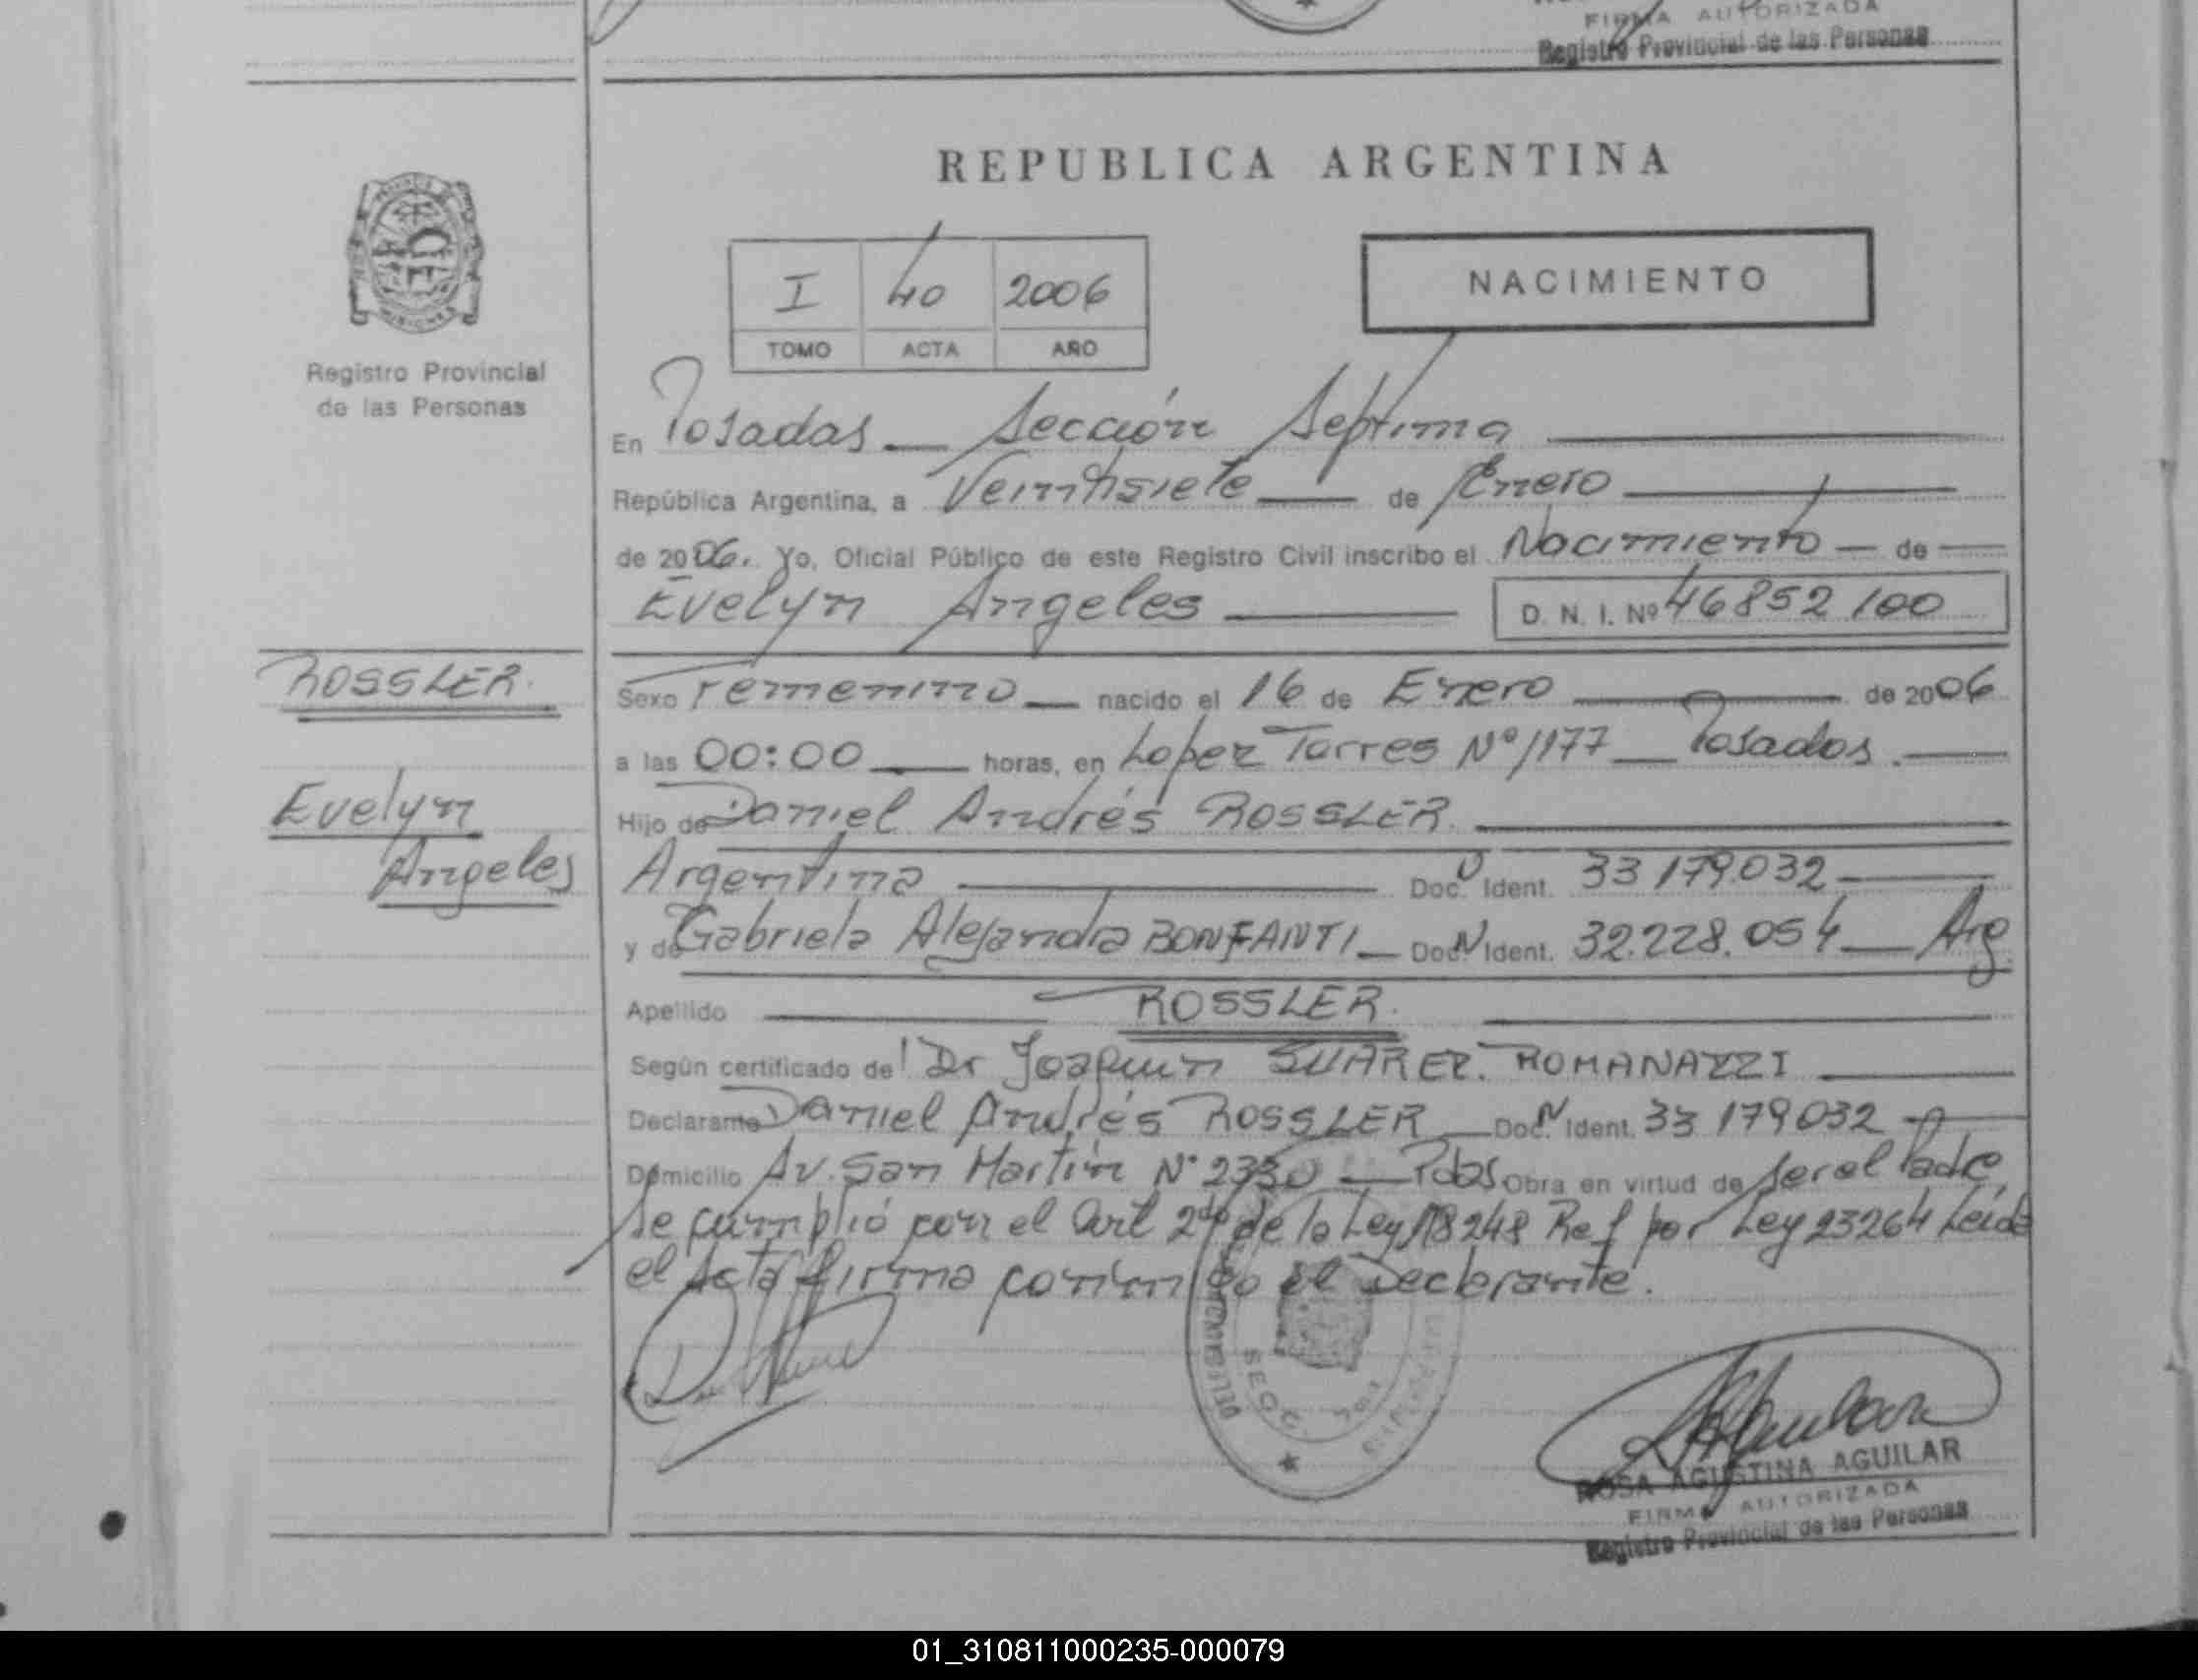 FIRMA AUTORIZADA
Registro Provincial de las Personas
REPUBLICA ARGENTINA
I 40 2006
TOMO ACTA AÑO
NACIMIENTO
Registro Provincial
de las Personas
En Posadas Sección Septima
República Argentina, a Veintisiete de Enero
de 2006. Yo, Oficial Público de este Registro Civil inscribo el Nacimiento de
Evelyn Angeles D. N. I. Nº 46852100
ROSSLER.
Evelyn
Angeles
Sexo Femenino nacido el 16 de Enero de 2006
a las 00:00 horas, en Lopez Torres Nº 1177 Posadas.
Hijo de Daniel Andrés ROSSLER.
Argentina Doc. N Ident. 33179.032
y de Gabriela Alejandra BONFANTI Doc. N Ident. 32.228.054 Arg
Apellido ROSSLER.
Según certificado del Dr Joaquin SUAREZ. ROMANAZZI
Declarante Daniel Andrés ROSSLER Doc. N Ident. 33179032
Domicilio Av. San Martín Nº 2330 Pdas Obra en virtud de ser el Padre
Se cumplió con el Art 2do de la Ley 18248 Ref por Ley 23264 Leída
el Acta firma conmigo el Declarante.
SECC. 7ma
ROSA AGUSTINA AGUILAR
FIRMA AUTORIZADA
Registro Provincial de las Personas
01_310811000235-000079